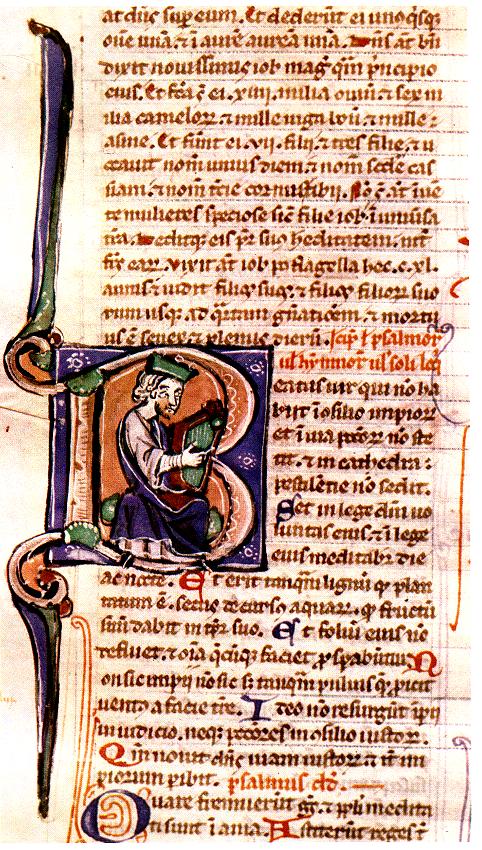 at dn̄s sup eum. Et dederūt ei unoq̄sq;
ouē unā. ⁊ ī aurē aureā unā. Dn̄s āt bn̄
dixit nouissimis iob mag̓ qm̄ p̓ncipio
eius. Et ſcā ē ei .xiiij. milia ouiū. ⁊ sex m
ilia camelor̄. ⁊ mille iuga boū. ⁊ mille
asine. Et fūnt ei .vii. filij. ⁊ tres filie. ⁊ u
ocauit nom̄ unius diem. ⁊ nom̄ scd̄e cas
siam. ⁊ nom̄ t̄cie cornustibij. Nō ſ̄t āt īuē
te mulieres speciose sic̄ filie iob. ī uniūsa
t̄ra. Deditq; eis pr̄ suꝰ h̓editatem. int̄
fr̄s ear̄. Vixit āt iob po flagella hec .c.xl.
annis. ⁊ uidit filios suos. ⁊ filios filior̄ suo
rum usq; ad q̄rtam gn̄atioēm. ⁊ mortu
us ē senex ⁊ plenus dierū.
ul hymnor̄ ul soli loq̄
Beatus uir qui nō ha
bijt ī ɔsilio impior̄
et ī uia pctōr̄ nō ste
tit. ⁊ in cathedra
pestilētie nō sedit.
Set in lege dn̄i uo
luntas eius. ⁊ ī lege
eius meditabr̄ die
ac nocte. Et erit tanqm̄ lignū qꝫ plan
tatum ē. secus decursꝰ aquar̄. qꝫ fructū
suū dabit in tp̄r suo. Et foliū eius nō
defluet. ⁊ oīa q̄cūqꝫ faciet ꝓspabūtur. N
on sic impii nō sic. sꝫ tanqm̄ puluis qꝫ ꝓicit
uento a facie t̄re. Ideo nō resurgūt īpij
in iudicio. neqꝫ pctōres in ɔsilio iustor̄.
Qm̄ nouit dn̄s uiam iustor̄. ⁊ it̄ im
piorum pibit. psalmus dd̄.
Quare fremuerūt gꝫ. ⁊ ppl̄i medita
ti sunt ī ania. Astiterūt reges t̄